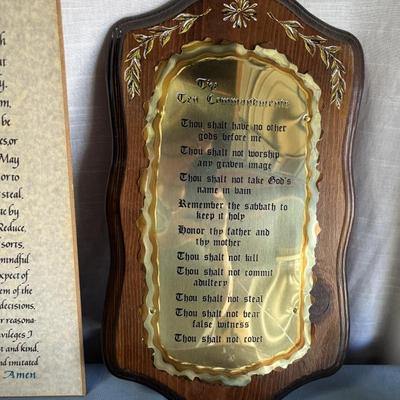 The
Ten Commandments
Thou shalt have no other
gods before me
Thou shalt not worship
any graven image
Thou shalt not take God's
name in vain
Remember the sabbath to
keep it holy
Honor thy father and
thy mother
Thou shalt not kill
Thou shalt not commit
adultery
Thou shalt not steal
Thou shalt not bear
false witness
Thou shalt not covet
be
May
or to
steal,
Reduce,
sorts,
mindful
of the
decisions,
reasona-
I
and kind,
and imitated
Amen